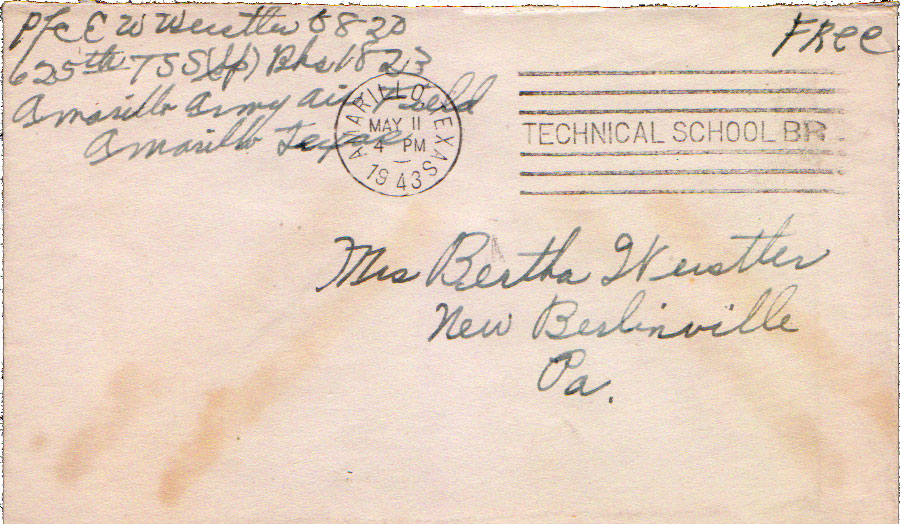 Pfc E W Weistler 58-20
625th TSS (Sp) Bks 1823
Amarillo Army Air Field
Amarillo Texas
Free
AMARILLO TEXAS
MAY 11
4 PM
1943
TECHNICAL SCHOOL BR.
Mrs Bertha Weistler
New Berlinville
Pa.